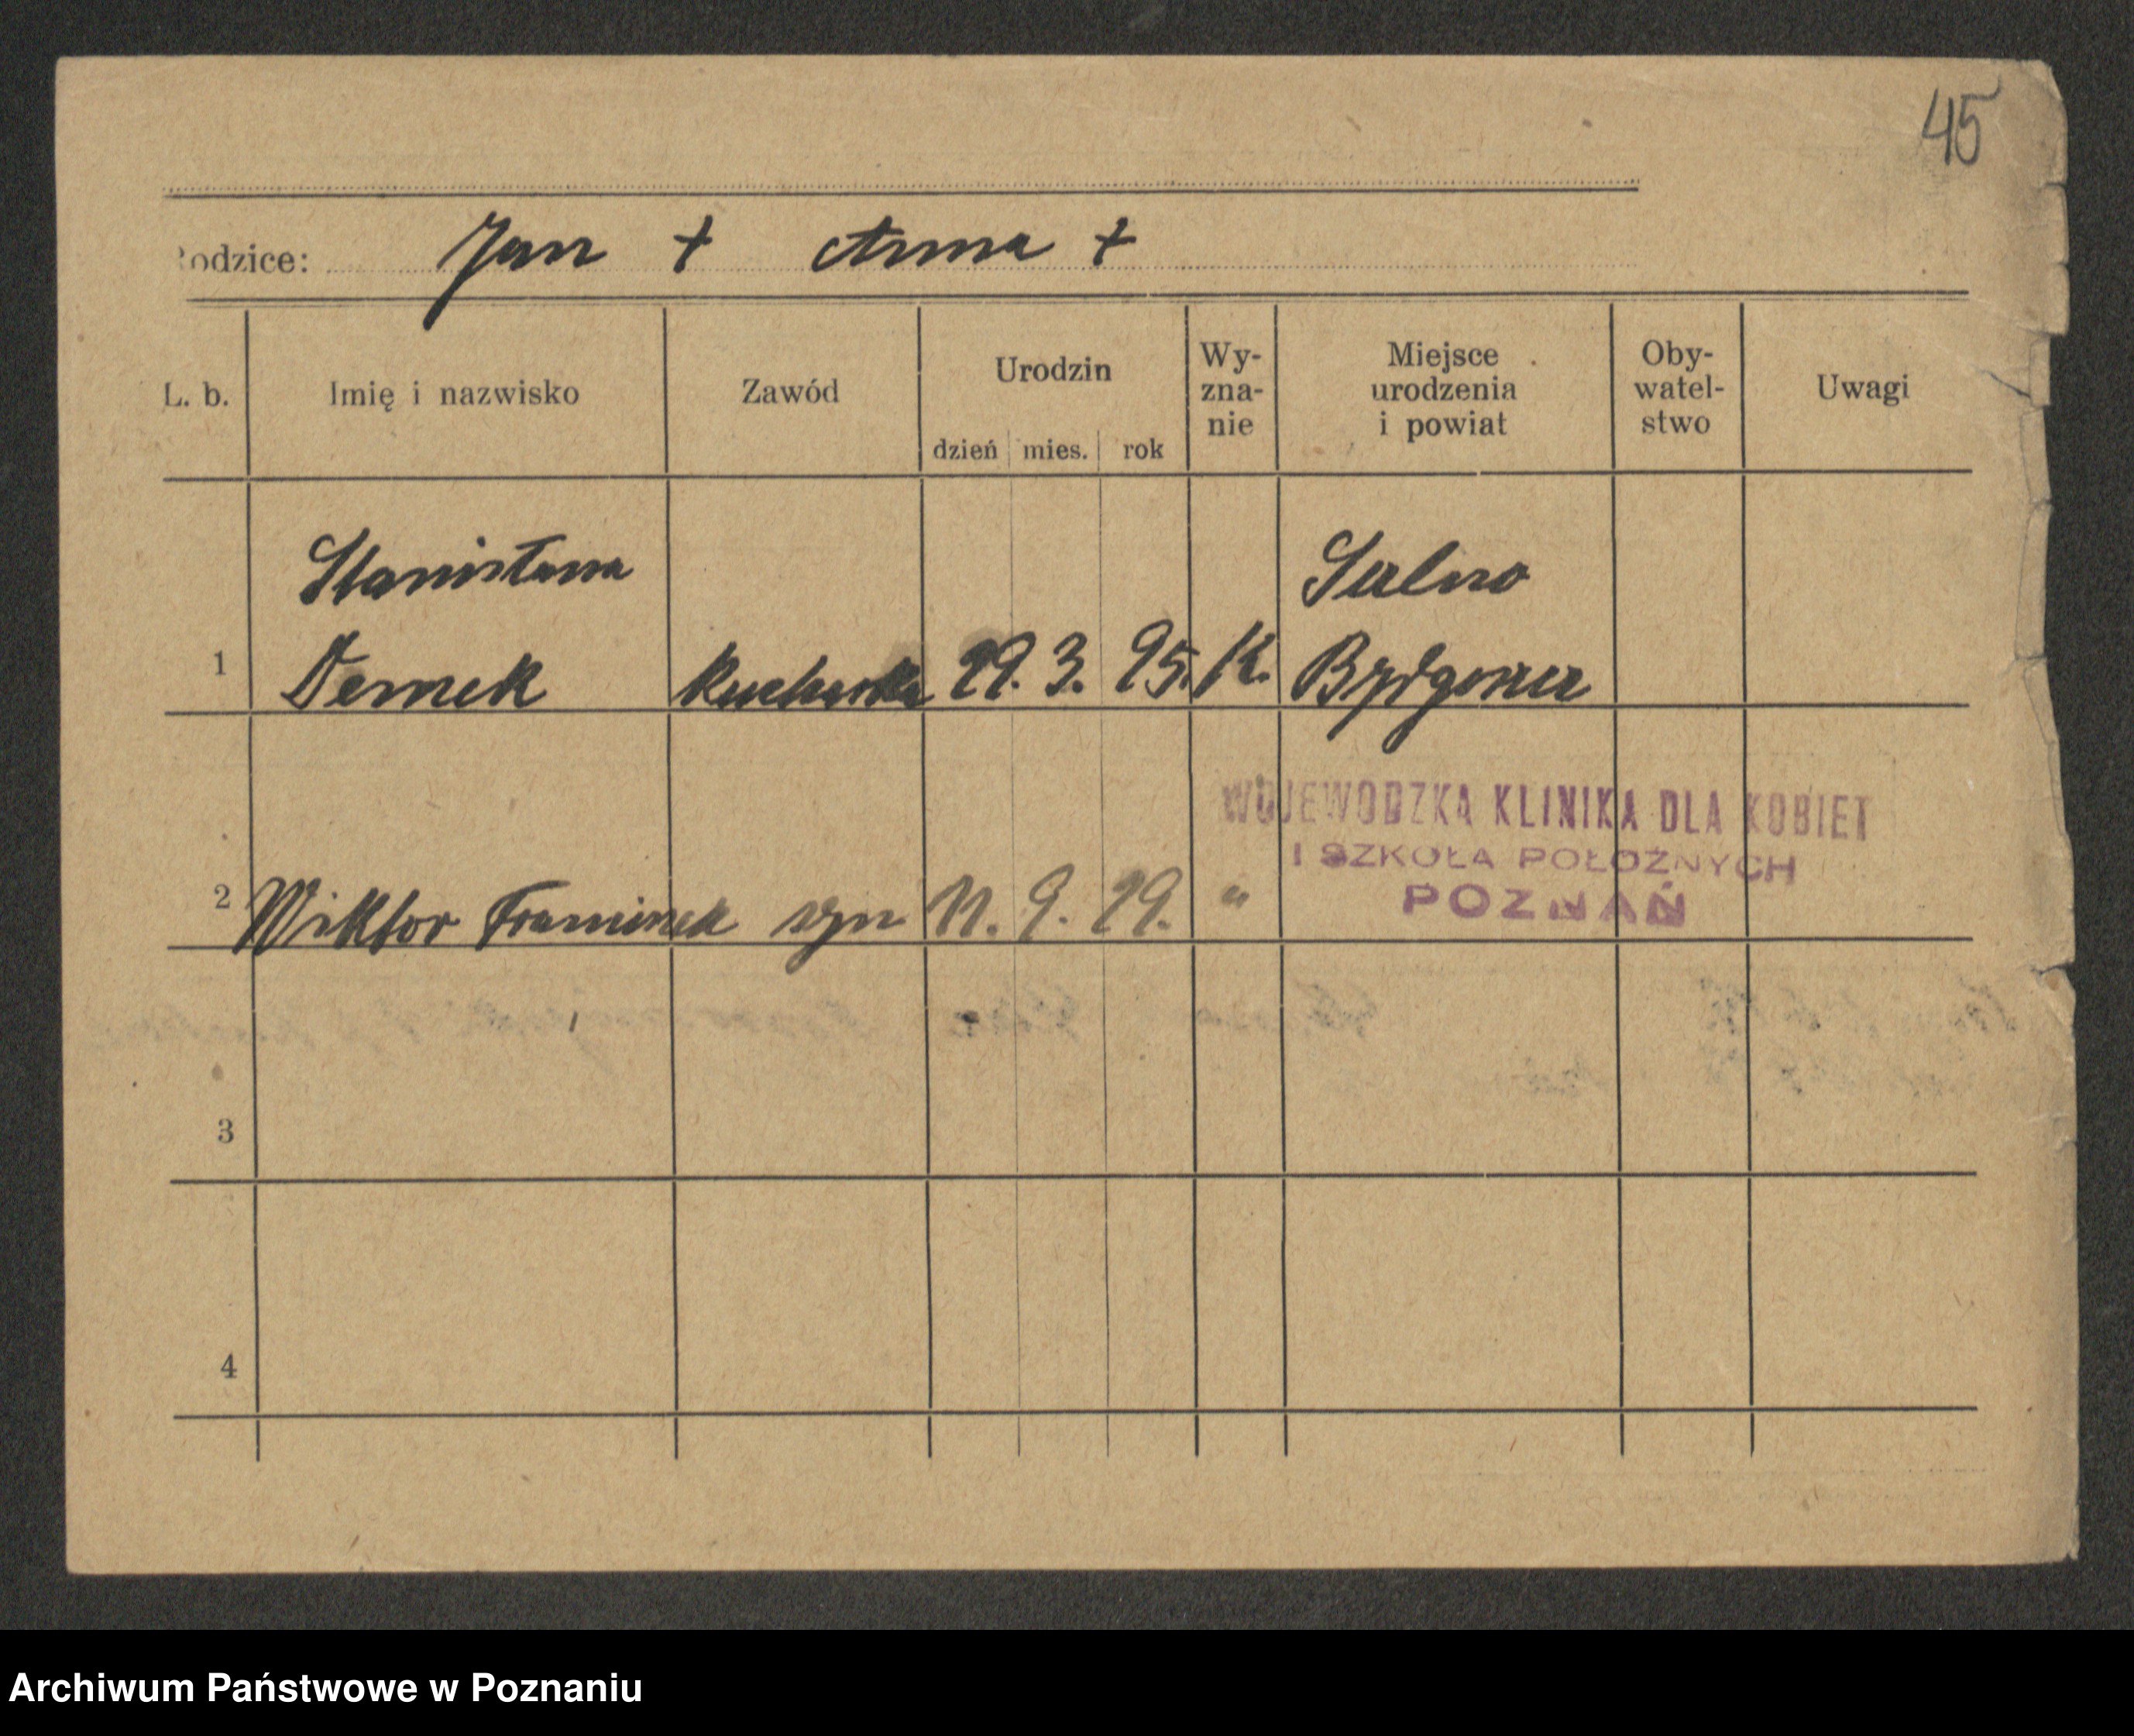 45
Rodzice: Jan + Anna +
L. b. Imię i nazwisko Zawód Urodzin Wy-zna-nie Miejsce urodzenia i powiat Oby-watel-stwo Uwagi
dzień mies. rok
Stanisława Salno
1 Demek Kucharka 29. 3. 95. K. Bydgoszcz
WOJEWODZKA KLINIKA DLA KOBIET
I SZKOŁA POŁOŻNYCH
POZNAŃ
2 Wiktor Franciszek syn 11. 9. 29. "
3
4
Archiwum Państwowe w Poznaniu